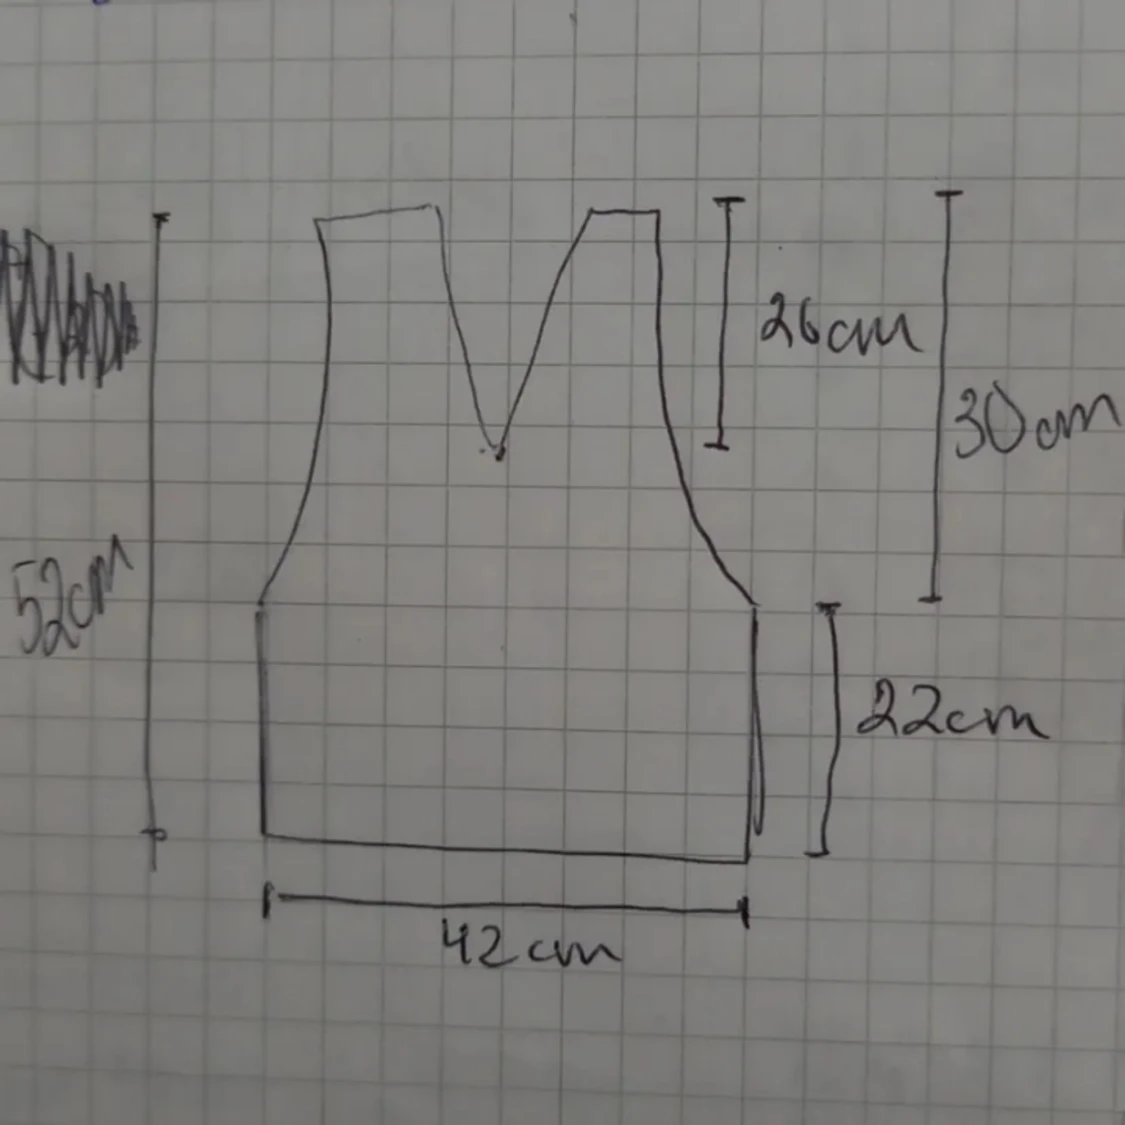 26cm
30cm
52cm
22cm
42cm